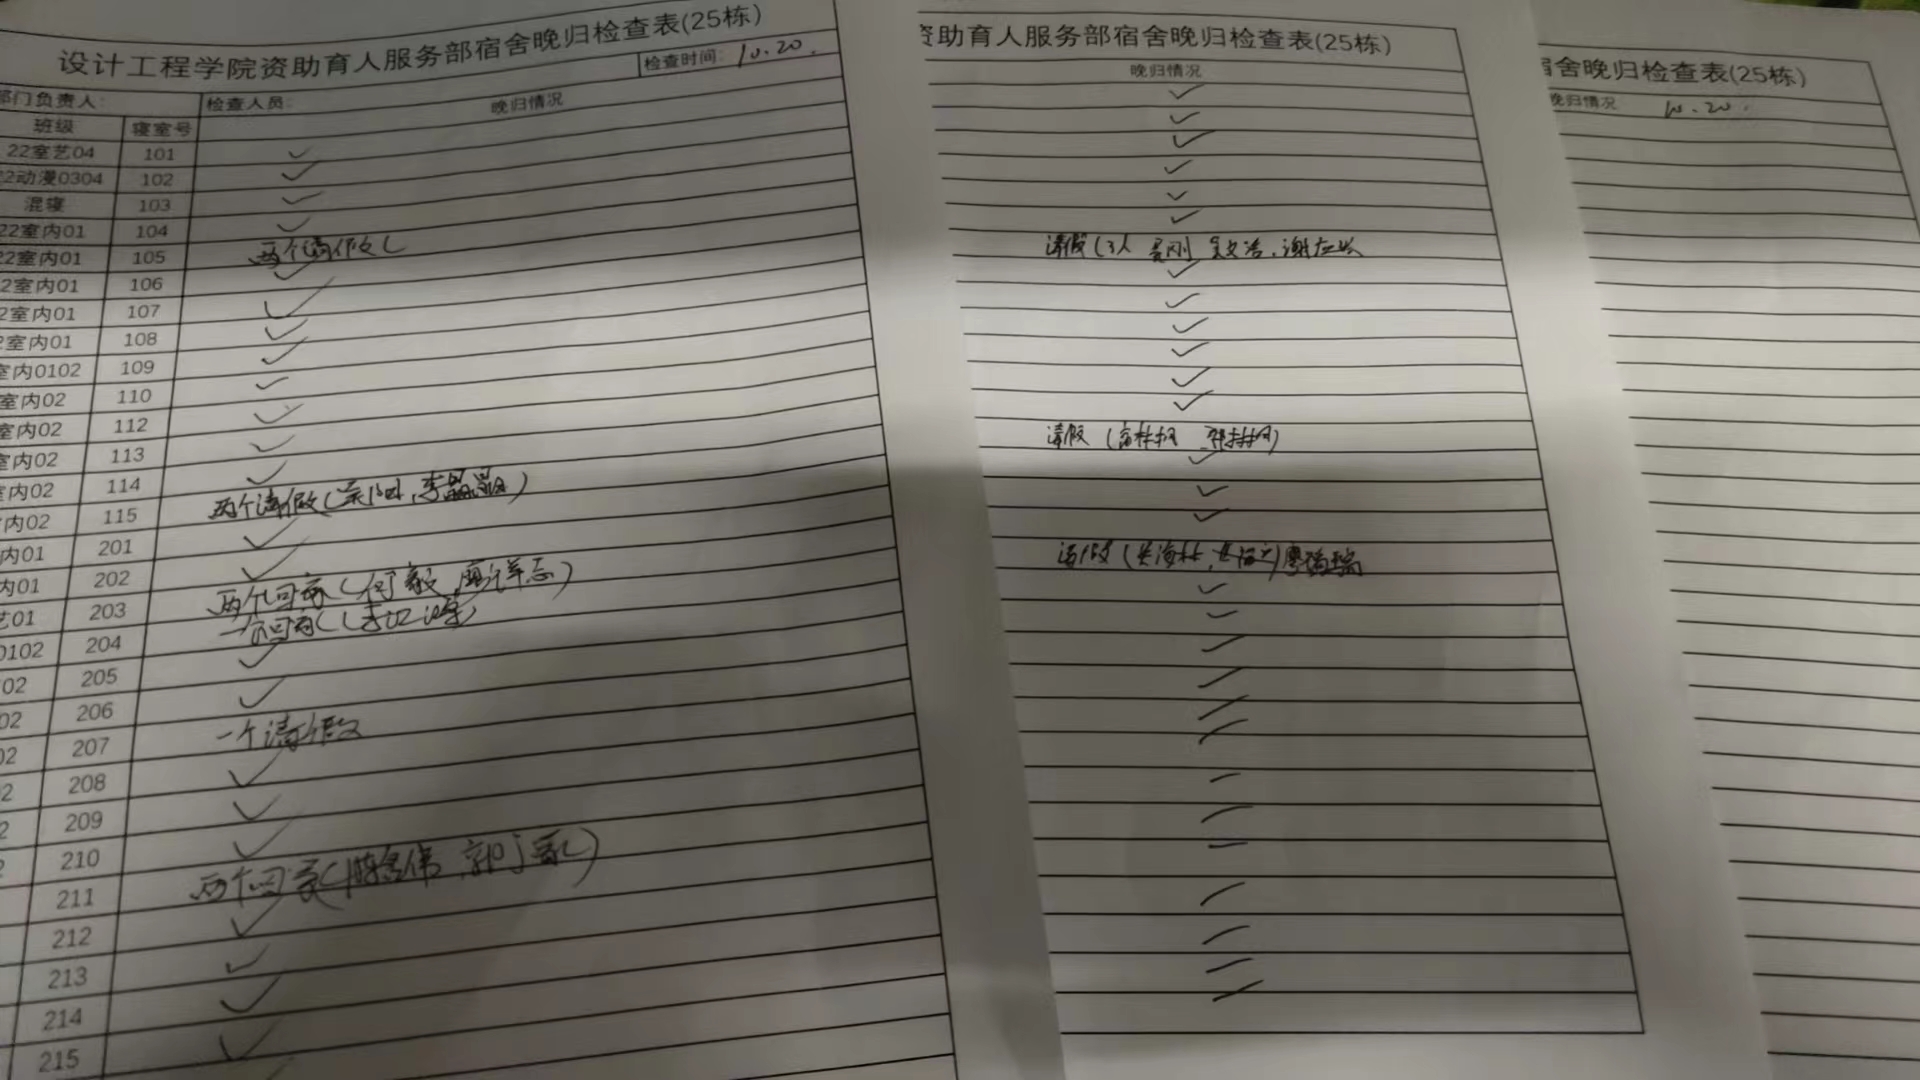 设计工程学院资助育人服务部宿舍晚归检查表(25栋)
部门负责人: 检查人员: 检查时间: 10.20.
班级 寝室号 晚归情况
22室艺04 101 ✓
22动漫0304 102 ✓
混寝 103 ✓
22室内01 104 ✓
22室内01 105 两个请假(
2室内01 106 ✓
2室内01 107 ✓
2室内01 108 ✓
室内0102 109 ✓
室内02 110 ✓
室内02 112 ✓
室内02 113 ✓
内02 114 ✓
内02 115 两个请假(
内01 201 ✓
内01 202 ✓
艺01 203 两个回家(何毅
0102 204 一个回家(
02 205 ✓
02 206 ✓
02 207 一个请假
2 208 ✓
2 209 ✓
2 210 ✓
211 两个回家(
212 ✓
213 ✓
214 ✓
215 ✓
资助育人服务部宿舍晚归检查表(25栋)
晚归情况
✓
✓
✓
✓
✓
✓
请假(3人
✓
✓
✓
✓
✓
✓
请假(
✓
✓
✓
请假(
✓
✓
宿舍晚归检查表(25栋)
晚归情况 10.20.